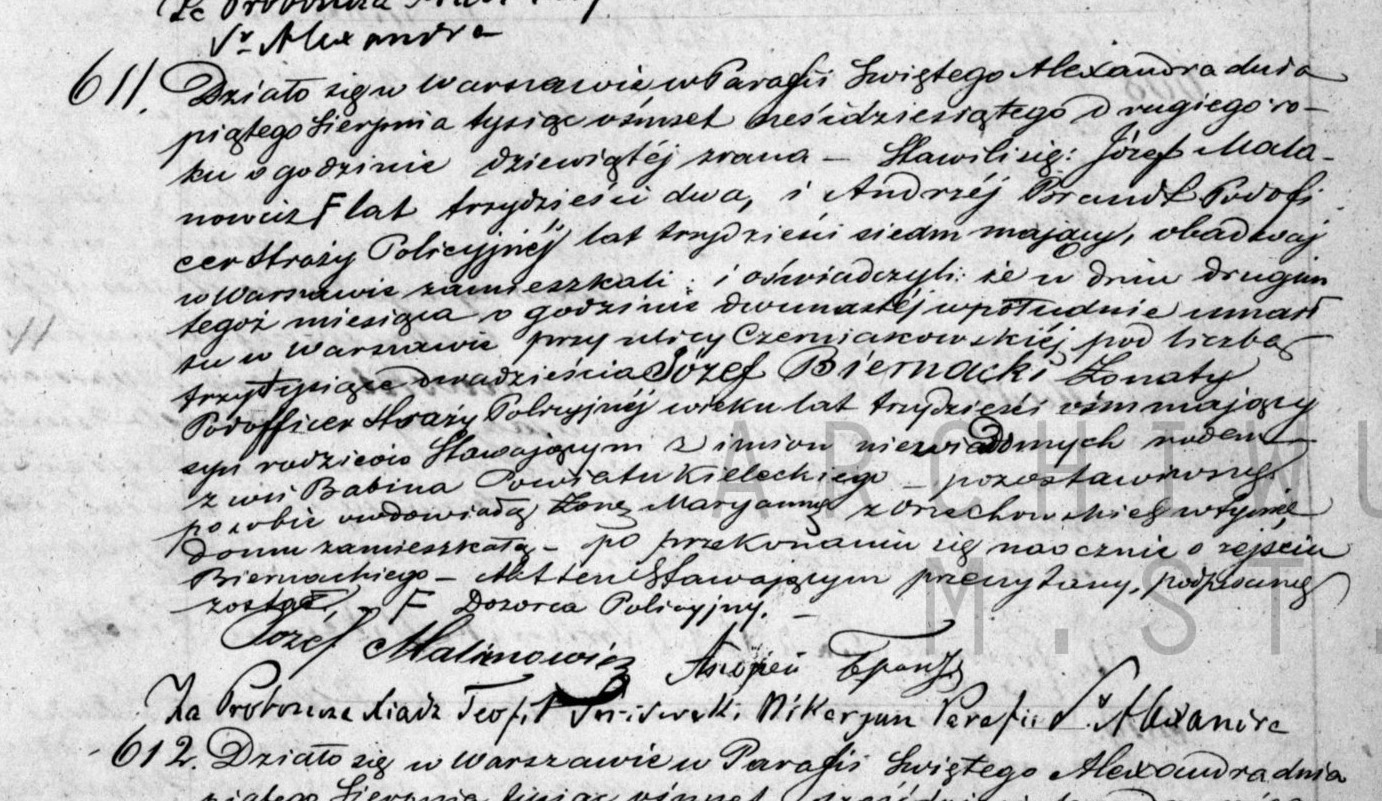 Za Proboszcza
Sgo Alexandra
611. Działo się w Warszawie w Parafii Świętego Alexandra dnia
piątego Sierpnia tysiąc ośmset sześćdziesiątego drugiego ro-
ku o godzinie dziewiątéj zrana – Stawili się: Józef Mala-
nowicz F lat trzydzieści dwa, i Andrzéj Brandt Podofi
cer Straży Policyjnéj lat trzydzieści siedm mający, obadwaj
w Warszawie zamieszkali; i oświadczyli: że w dniu drugim
tegoż miesiąca o godzinie dwunastéj w południe umarł
tu w Warszawie przy ulicy Czerniakowskiéj pod liczbą
trzy tysiące dwadzieścia Józef Biernacki Żonaty
Podofficer Straży Policyjnéj wieku lat trzydzieści ośm mający
syn rodziców Stawającym z imion niewiadomych rodem
z wsi Babina Powiatu Kieleckiego – pozostawiwszy
po sobie owdowiałą Żonę Maryannę z Orzechowskich w tymże
Domu zamieszkałą – po przekonaniu się naocznie o zejściu
Biernackiego – Akt ten Stawającym przeczytany, podpisany
został, F Dozorca Policyjny. –
Józef Malinowicz Андрей Брандт
Za Proboszcza Xiądz Teofil Wikaryusz Parafii Sgo Alexandra
612. Działo się w Warszawie w Parafii Świętego Alexandra dnia
piątego Sierpnia tysiąc ośmset sześćdzie
ARCHIWU
M.ST.